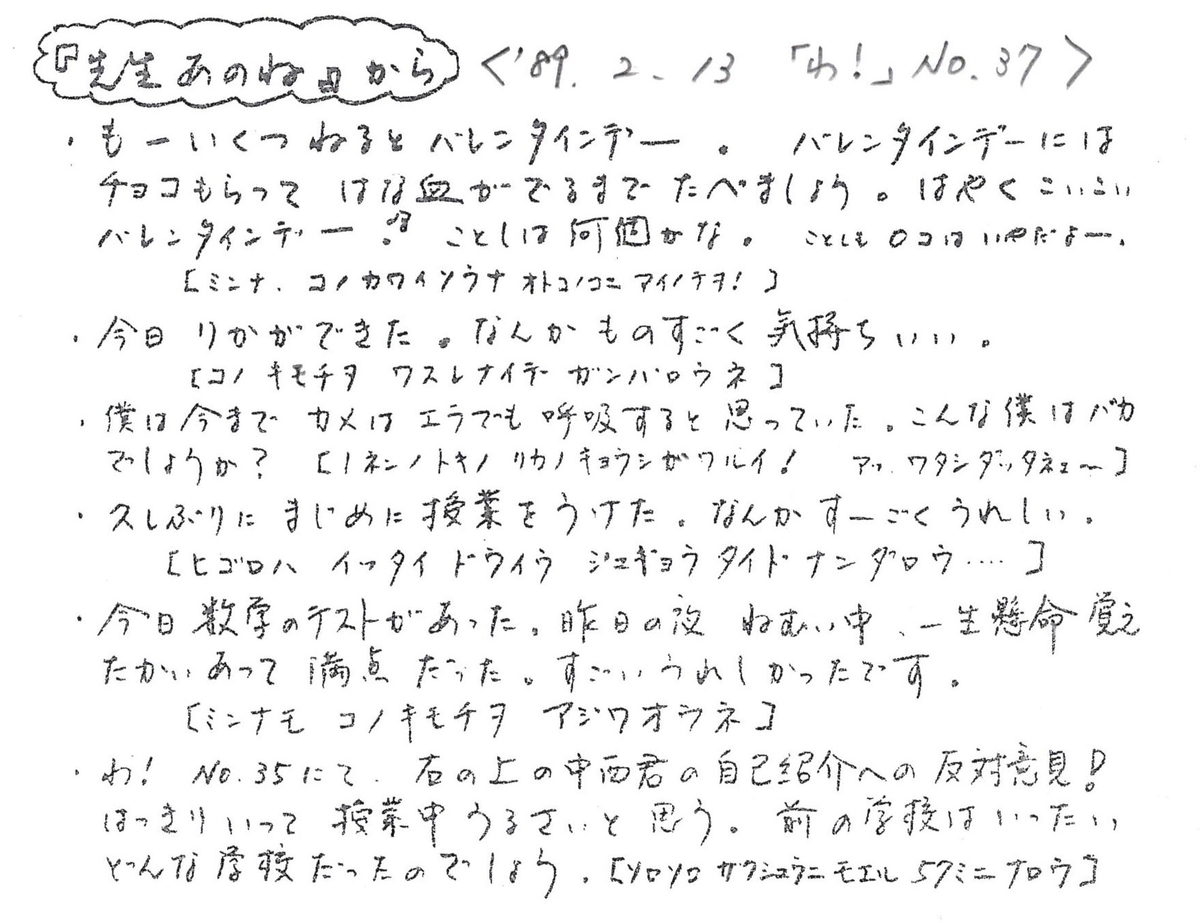 『先生あのね』から <'89. 2. 13 「わ!」No.37>
・もーいくつねるとバレンタインデー。 バレンタインデーには
チョコもらって はな血がでるまで たべましょう。はやくこいこい
バレンタインデー!! ことしは何個かな。 ことしも 0コはいやだよー.
[ミンナ. コノカワイソウナ オトコノコニ アイノテヲ!]
・今日 りかができた。なんか ものすごく 気持ちいい。
[コノ キモチヲ ワスレナイデ ガンバロウネ]
・僕は今まで カメは エラでも呼吸すると思っていた。こんな僕はバカ
でしょうか? [1ネンノトキノ リカノキョウシガワルイ! アッ. ワタシダッタネェ〜]
・久しぶりに まじめに授業をうけた。なんか すーごくうれしい.
[ヒゴロハ イッタイ ドウイウ ジュギョウタイドナンダロウ‥‥]
・今日数学のテストがあった。昨日の夜 ねむい中、一生懸命覚え
たかいあって 満点 だった。すごいうれしかったです。
[ミンナモ コノキモチヲ アジワオウネ]
・わ! No.35にて. 右の上の中西君の自己紹介への反対意見!
はっきりいって 授業中うるさいと思う。前の学校はいったい
どんな学校だったのでしょう. [ソロソロ ガクシュウニモエル 57ミニナロウ]